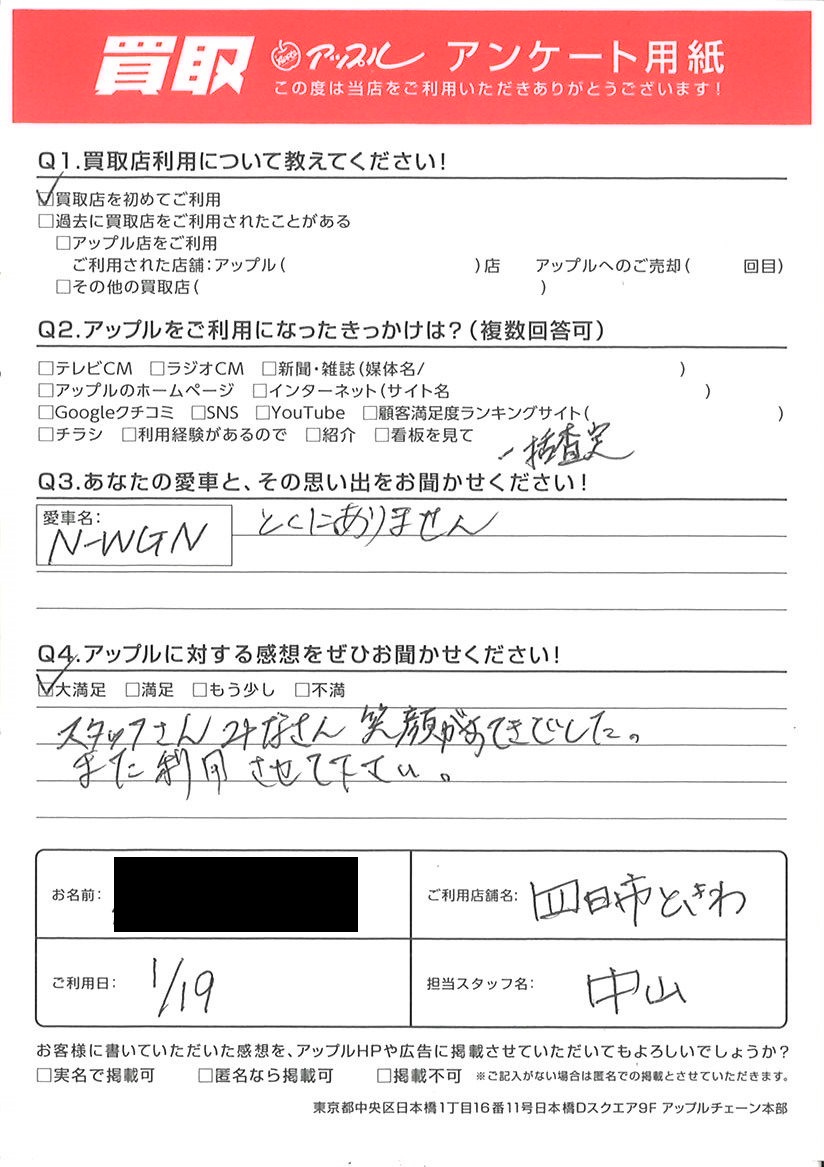 買取 アップル アンケート用紙
この度は当店をご利用いただきありがとうございます!
Q1.買取店利用について教えてください!
☑買取店を初めてご利用
□過去に買取店をご利用されたことがある
□アップル店をご利用
ご利用された店舗:アップル( )店 アップルへのご売却( 回目)
□その他の買取店( )
Q2.アップルをご利用になったきっかけは?(複数回答可)
□テレビCM □ラジオCM □新聞・雑誌(媒体名/ )
□アップルのホームページ □インターネット(サイト名 )
□Googleクチコミ □SNS □YouTube □顧客満足度ランキングサイト( )
□チラシ □利用経験があるので □紹介 □看板を見て
一括査定
Q3.あなたの愛車と、その思い出をお聞かせください!
愛車名: N-WGN とくにありません
Q4.アップルに対する感想をぜひお聞かせください!
☑大満足 □満足 □もう少し □不満
スタッフさん みなさん 笑顔がすてきでした。
また利用させて下さい。
お名前: ご利用店舗名: 四日市ときわ
ご利用日: 1/19 担当スタッフ名: 中山
お客様に書いていただいた感想を、アップルHPや広告に掲載させていただいてもよろしいでしょうか?
□実名で掲載可 □匿名なら掲載可 □掲載不可 ※ご記入がない場合は匿名での掲載とさせていただきます。
東京都中央区日本橋1丁目16番11号日本橋Dスクエア9F アップルチェーン本部